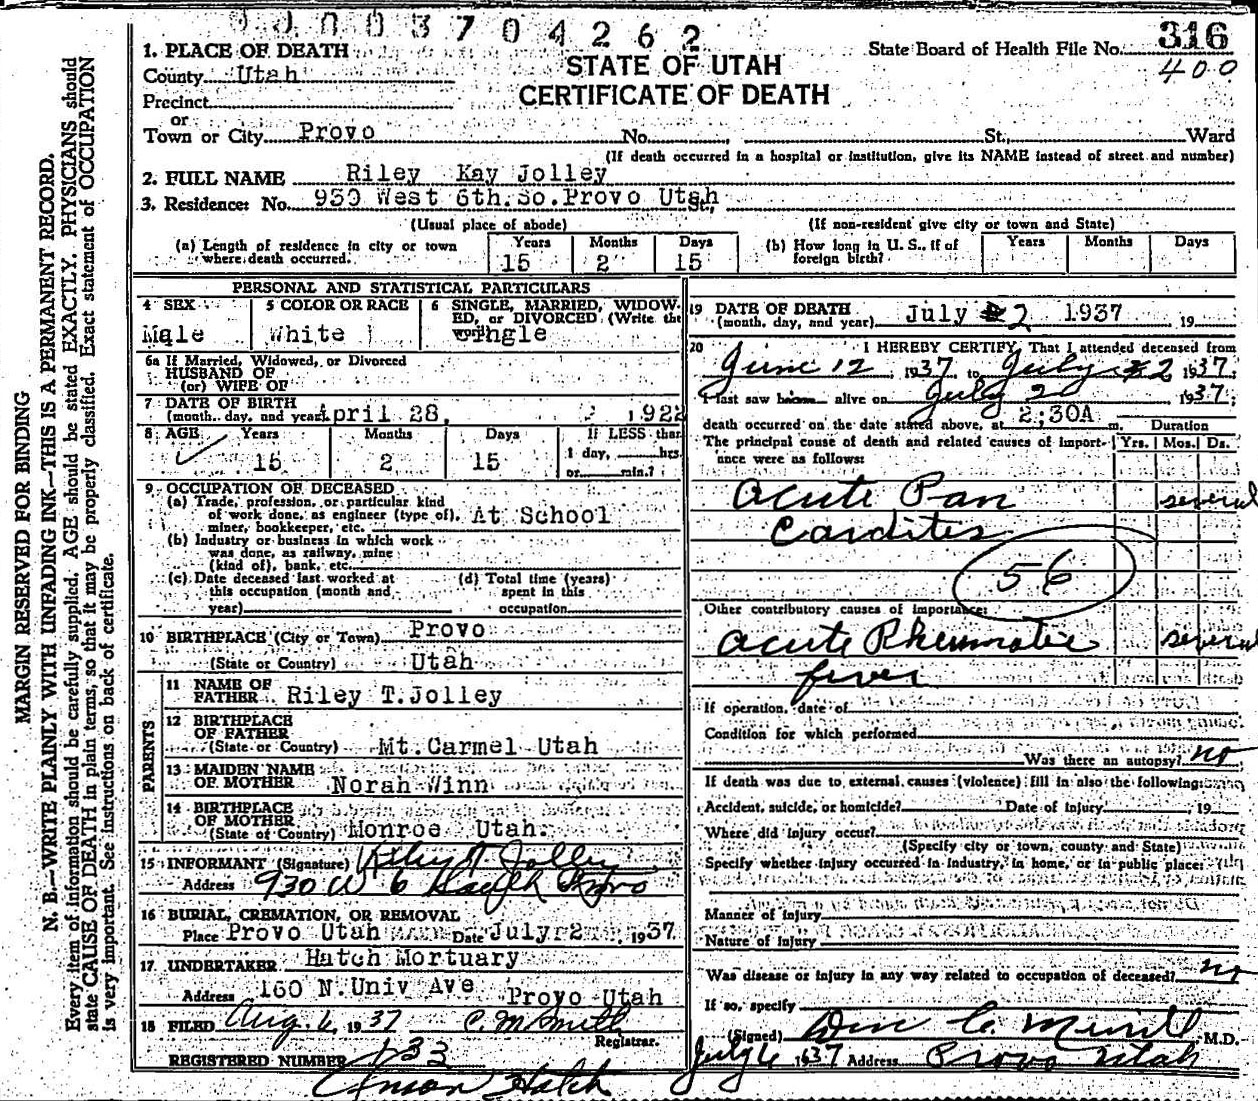 0 0 0 0 3 7 0 4 2 6 2
1. PLACE OF DEATH
County Utah
Precinct
or
Town or City Provo No. St., Ward
STATE OF UTAH
CERTIFICATE OF DEATH
State Board of Health File No. 316
400
(If death occurred in a hospital or institution, give its NAME instead of street and number)
2. FULL NAME Riley Kay Jolley
3. Residence: No. 930 West 6th.So.Provo Utah St.,
(Usual place of abode) (If non-resident give city or town and State)
(a) Length of residence in city or town where death occurred. Years 15 Months 2 Days 15
(b) How long in U. S., if of foreign birth? Years Months Days
PERSONAL AND STATISTICAL PARTICULARS
4 SEX Male
5 COLOR OR RACE White
6 SINGLE, MARRIED, WIDOWED, or DIVORCED (Write the word) Single
6a If Married, Widowed, or Divorced
HUSBAND OF
(or) WIFE OF
7 DATE OF BIRTH
(month, day, and year) April 28, 1922
8 AGE Years 15 Months 2 Days 15 If LESS than 1 day, hrs. or min.?
9 OCCUPATION OF DECEASED
(a) Trade, profession, or particular kind
of work done, as engineer (type of), At School
miner, bookkeeper, etc.
(b) Industry or business in which work
was done, as railway, mine
(kind of), bank, etc.
(c) Date deceased last worked at
this occupation (month and
year)
(d) Total time (years)
spent in this
occupation
10 BIRTHPLACE (City or Town) Provo
(State or Country) Utah
PARENTS
11 NAME OF
FATHER Riley T.Jolley
12 BIRTHPLACE
OF FATHER
(State or Country) Mt.Carmel Utah
13 MAIDEN NAME
OF MOTHER Norah Winn
14 BIRTHPLACE
OF MOTHER
(State of Country) Monroe Utah.
15 INFORMANT (Signature) Riley T Jolley
Address 930 W 6 South Provo
16 BURIAL, CREMATION, OR REMOVAL
Place Provo Utah Date July 2 1937
17 UNDERTAKER Hatch Mortuary
Address 160 N.Univ Ave Provo Utah
18 FILED Aug. 6, 1937
Registrar.
REGISTERED NUMBER 133
Hatch
19 DATE OF DEATH
(month, day, and year) July 2 1937 19
20 I HEREBY CERTIFY, That I attended deceased from
June 12, 1937 to July 2 1937;
I last saw him alive on July 2 1937;
death occurred on the date stated above, at 2:30A m.
The principal cause of death and related causes of importance were as follows:
Duration
Yrs. Mos. Ds.
Acute Pan several
Carditis
56
Other contributory causes of importance:
Acute Rheumatic several
fever
If operation, date of
Condition for which performed
Was there an autopsy? no
If death was due to external causes (violence) fill in also the following:
Accident, suicide, or homicide? Date of Injury 19
Where did injury occur?
(Specify city or town, county and State)
Specify whether injury occurred in industry, in home, or in public place:
Manner of Injury
Nature of Injury
Was disease or injury in any way related to occupation of deceased? no
If so, specify
(Signed) Merrill M.D.
July 6 1937 Address Provo Utah
MARGIN RESERVED FOR BINDING
N. B.—WRITE PLAINLY WITH UNFADING INK—THIS IS A PERMANENT RECORD.
Every item of information should be carefully supplied. AGE should be stated EXACTLY. PHYSICIANS should
state CAUSE OF DEATH in plain terms, so that it may be properly classified. Exact statement of OCCUPATION
is very important. See instructions on back of certificate.